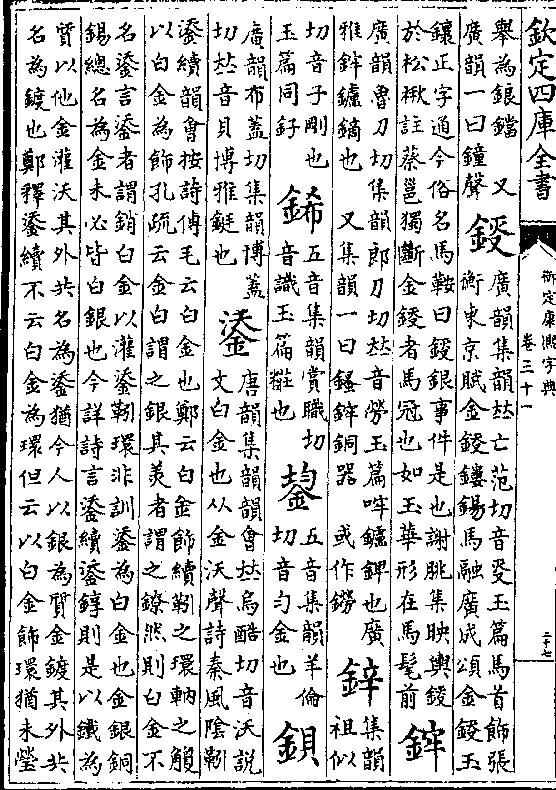 欽定四庫全書
御定康熙字典
卷三十一
二十七
舉為鋃鐺 又
廣韻一曰鐘聲
鋄
廣韻集韻𠀤亡范切音㚇玉篇馬首飾張
衡東京賦金鋄鏤鍚馬融廣成頌金鋄玉
鑲正字通今俗名馬鞍曰鋄銀事件是也謝朓集映輿鋄
於松楸註蔡邕獨斷金鋄者馬冠也如玉華形在馬髦前
廣韻魯刀切集韻郎刀切𠀤音勞玉篇哰鑪錍也廣
雅鑪鏑也 又集韻一曰銅器 或作鐒
鋅
集韻
祖似
切音子剛也
玉篇同釨
五音集韻賞職切
音識玉篇也
鋆
五音集韻羊倫
切音勻金也
鋇
廣韻布蓋切集韻博蓋
切𠀤音貝博雅鋌也
鋈
唐韻集韻韻會𠀤烏酷切音沃說
文白金也从金沃聲詩秦風陰靷
鋈續韻會按詩傳毛云白金也鄭云白金飾續靷之環軜之觼
以白金為飾孔疏云金白謂之銀其美者謂之鐐然則白金不
名鋈言鋈者謂銷白金以灌鋈靷環非訓鋈為白金也金銀銅
錫總名為金未必皆白銀也今詳詩言鋈續鋈錞則是以鐵為
質以他金灌沃其外共名為鋈猶今人以銀為質金鍍其外共
名為鍍也鄭釋鋈續不云白金為環但云以白金飾環猶未瑩